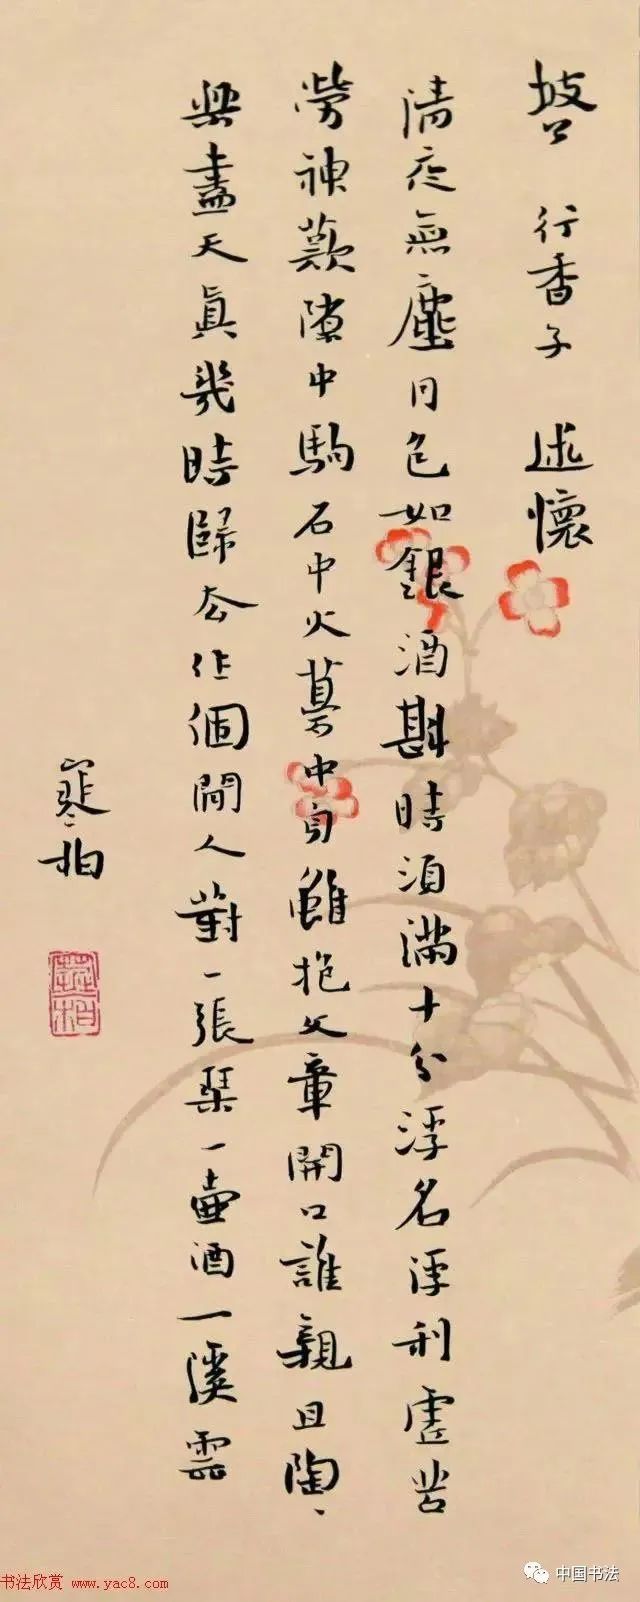 坡公 行香子 述懷
清夜無塵月色如銀酒斟時須滿十分浮名浮利虛苦
勞神歎隙中駒石中火夢中身雖抱文章開口誰親且陶、
樂盡天真幾時歸去作個閒人對一張琴一壺酒一溪雲
柏
书法欣赏 www.yac8.com
中国书法